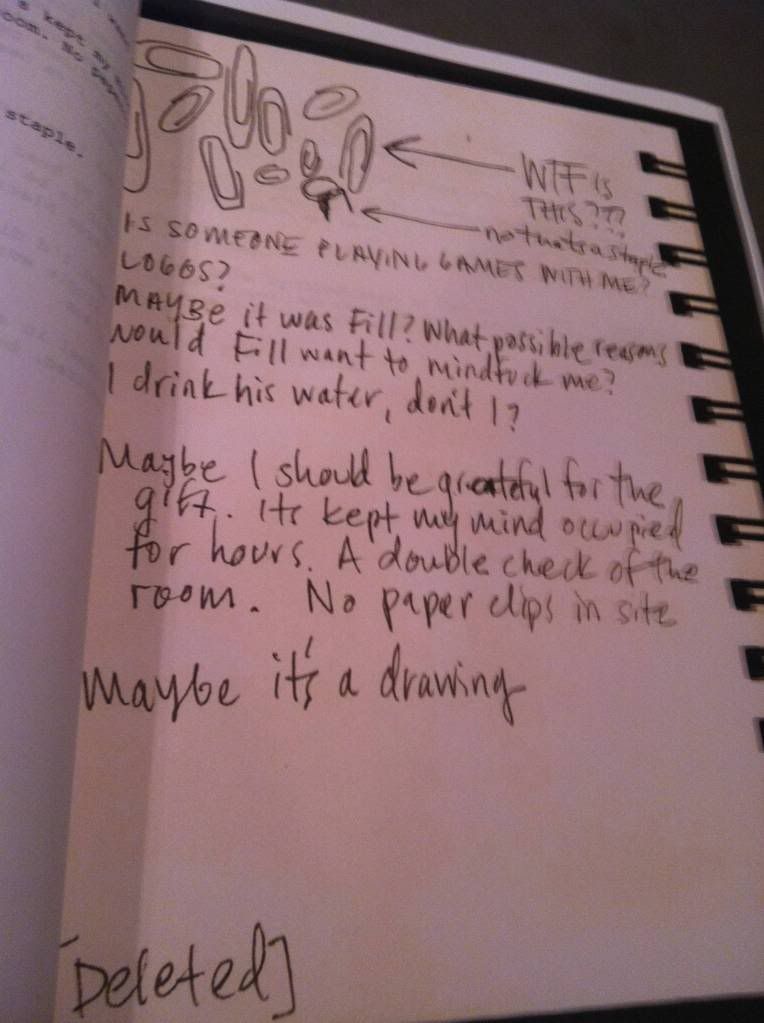 s kept my
oom. No pape
staple.
WTF is
THIS???
no that's a staple
IS SOMEONE PLAYING GAMES WITH ME?
LOGOS?
MAYBE it was Fill? What possible reasons
would Fill want to mindfuck me?
I drink his water, don't I?
Maybe I should be grateful for the
gift. Its kept my mind occupied
for hours. A double check of the
room. No paper clips in site
Maybe it's a drawing
[Deleted]